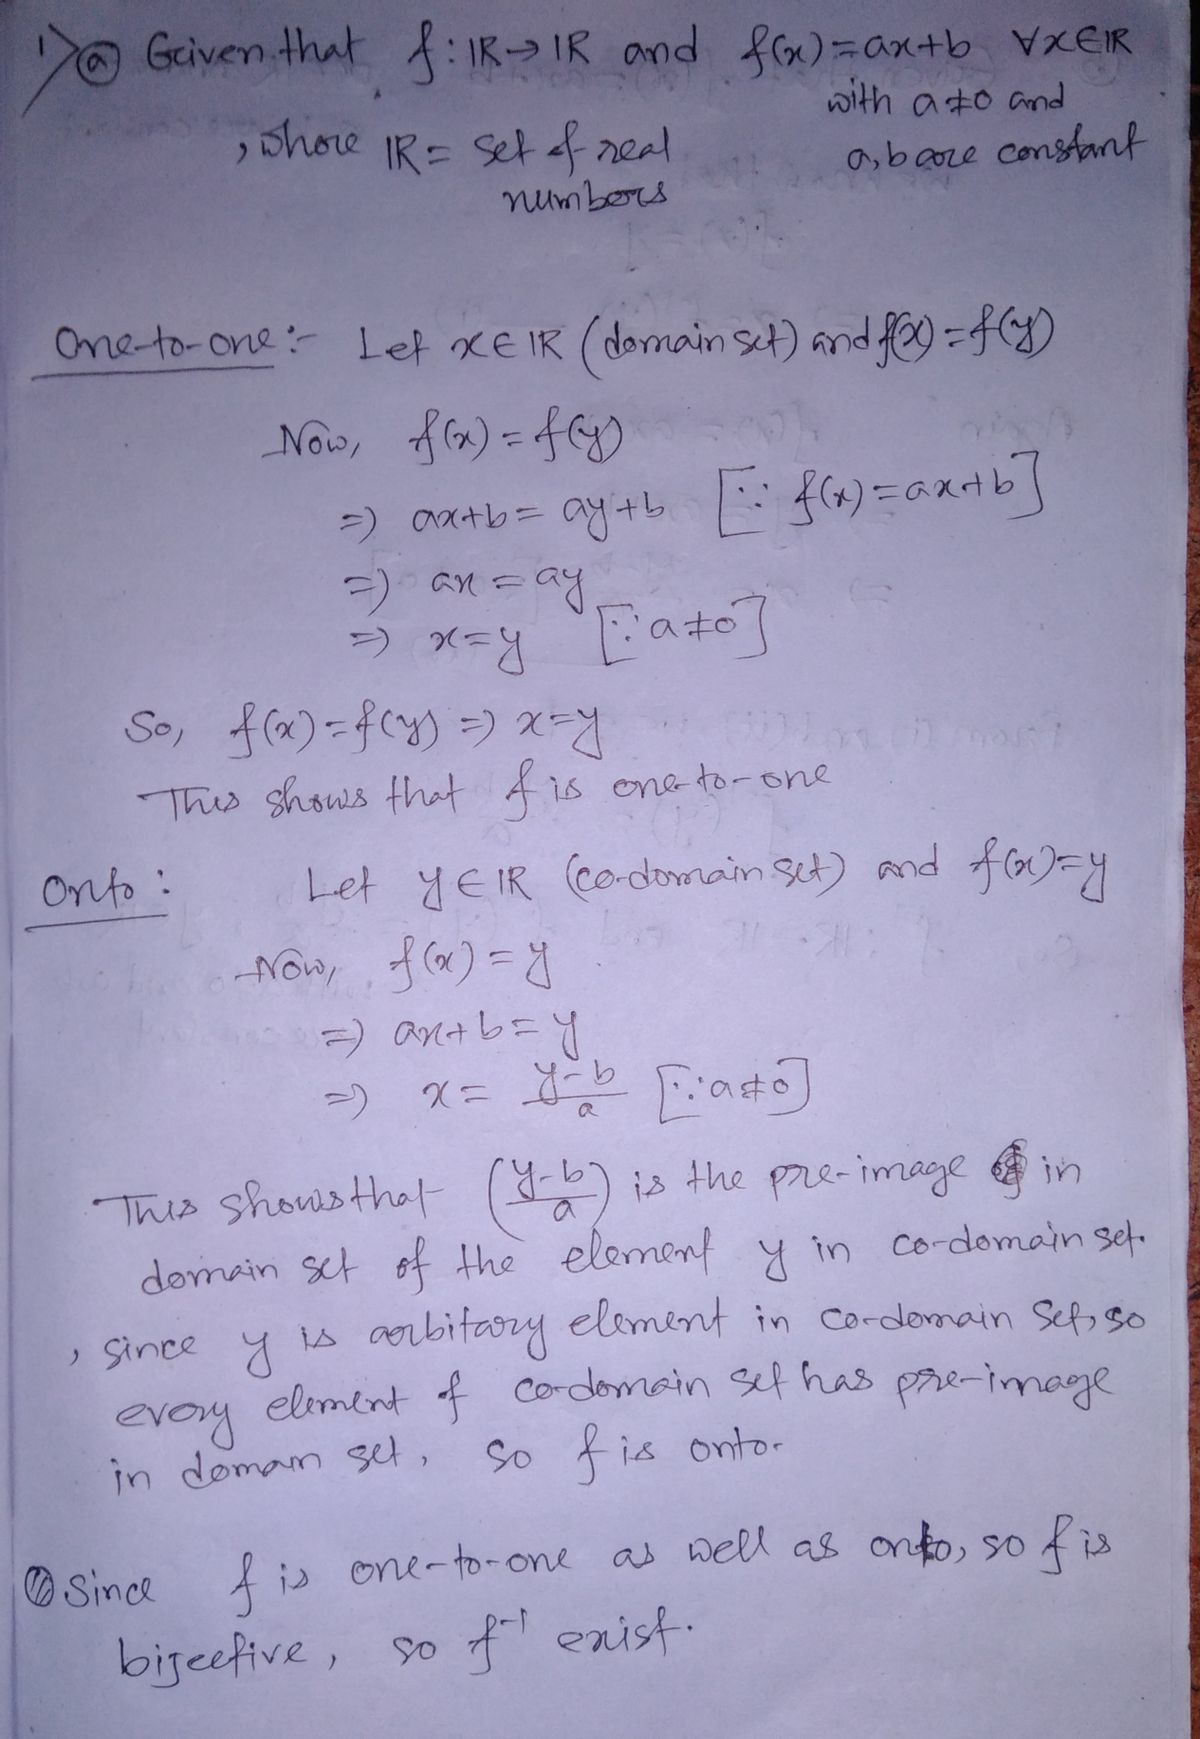 1) ⓐ Given that f: IR → IR and f(x) = ax+b ∀x∈IR
with a≠0 and
, whore IR = set of real a, b are constant
numbers
One-to-one :- Let x∈IR (domain set) and f(x) = f(y)
Now, f(x) = f(y)
=> ax+b = ay+b [∵ f(x) = ax+b]
=> ax = ay
=> x=y [∵ a≠0]
So, f(x) = f(y) => x=y
This shows that f is one-to-one
Onto : Let y∈IR (co-domain set) and f(x)=y
Now, f(x) = y
=> ax+b = y
=> x = (y-b)/a [∵ a≠0]
This shows that ((y-b)/a) is the pre-image in
domain set of the element y in co-domain set.
, since y is arbitary element in co-domain set, so
every element of co-domain set has pre-image
in domain set, so f is onto.
Since f is one-to-one as well as onto, so f is
bijective, so f⁻¹ exist.